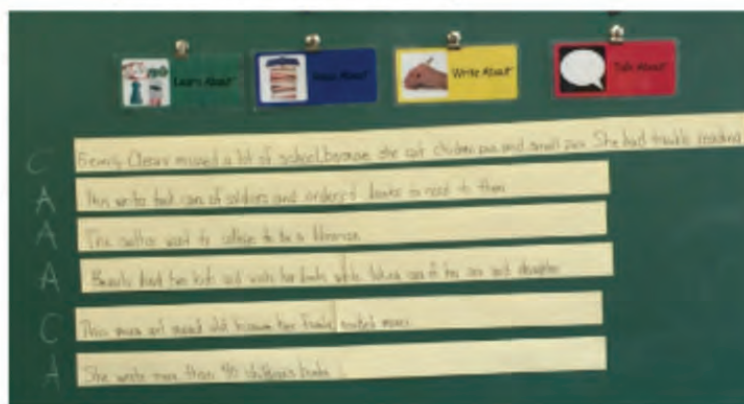 Learn About
About
Write About
Talk About
C Beverly Cleary missed a lot of school because she got chicken pox and small pox. She had trouble reading
A This writer took care of soldiers and ordered books to read to them
A This author went to college to be a librarian
A Beverly had two kids and wrote her books while taking care of her son and daughter
C This moved because her family needed money
A She wrote more than 40 children's books